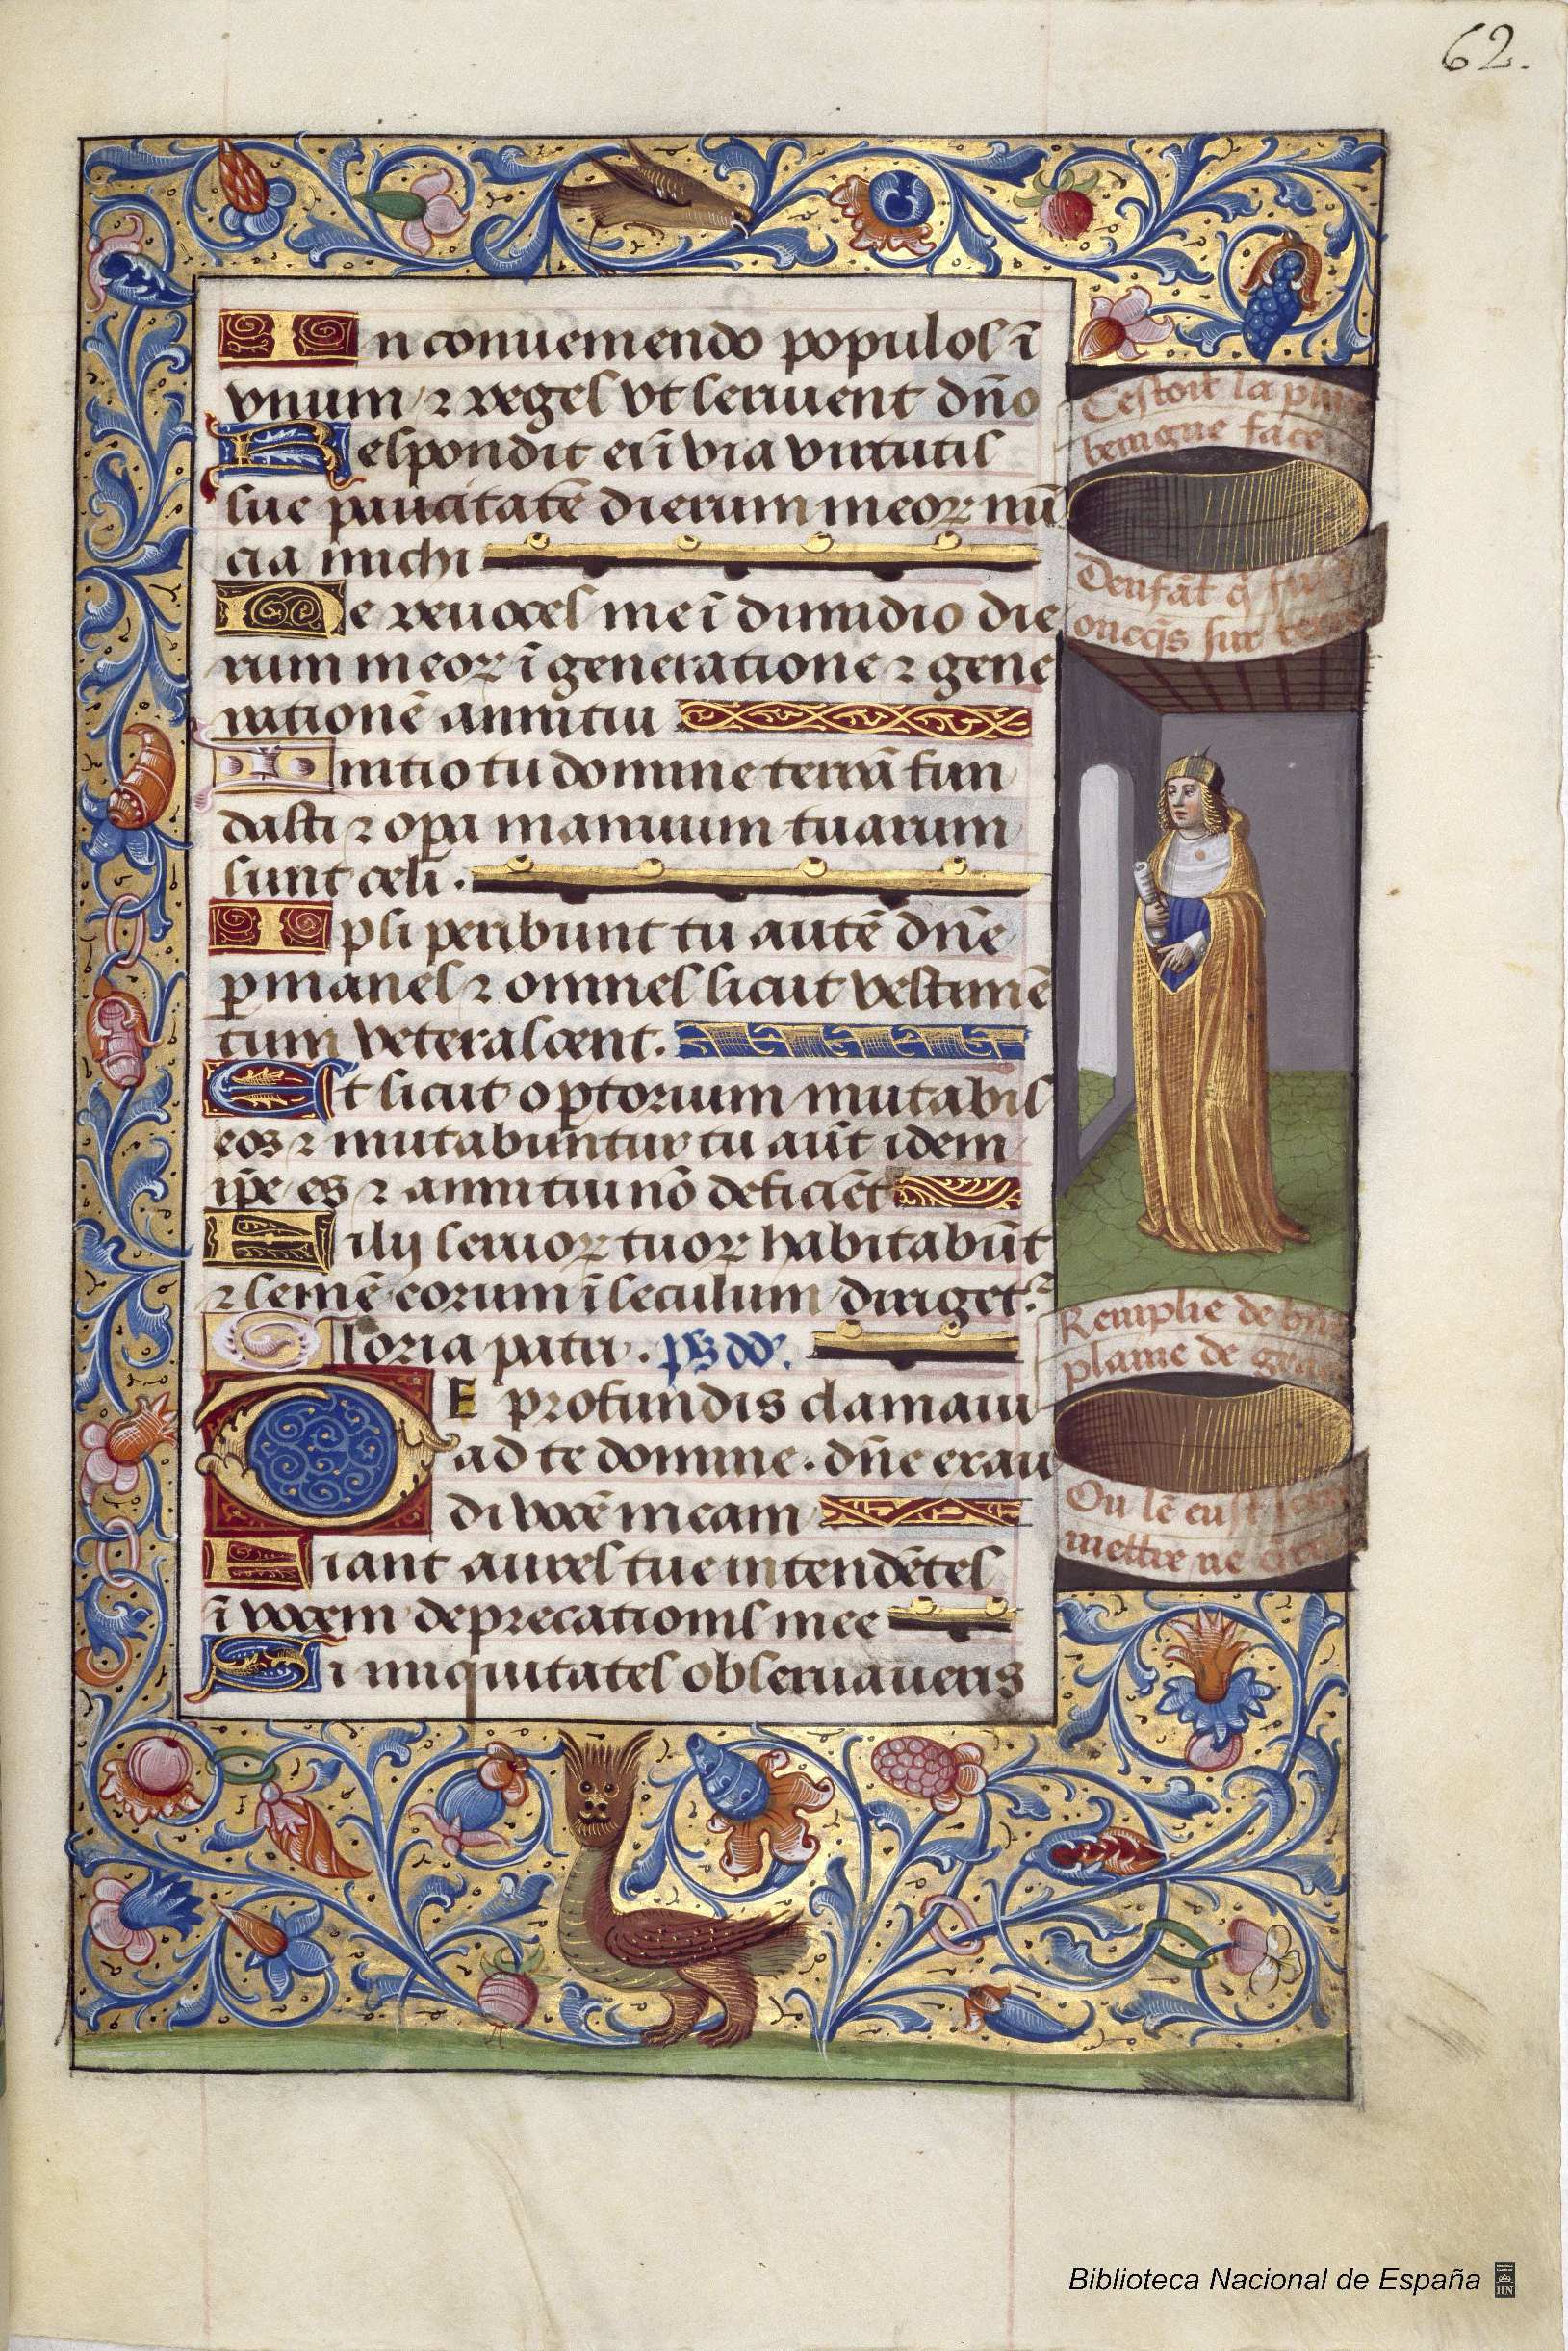 62.
In conueniendo populos ĩ
vnum ⁊ reges vt seruient dño
Respondit ei ĩ via virtutis
sue paucitatẽ dierum meoꝝ nũ
cia michi
Ne reuoces me ĩ dimidio die
rum meoꝝ ĩ generatione ⁊ gene
rationẽ anni tui
Initio tu domine terrã fun
dasti ⁊ opa manuum tuarum
sunt celi.
Ipsi peribunt tu autẽ dñe
ꝑmanes ⁊ omnes sicut vestimẽ
tum veterascent.
Et sicut oꝑtorium mutabis
eos ⁊ mutabuntur tu aũt idem
ip̃e es ⁊ anni tui nõ deficiẽt
Filij seruoꝝ tuoꝝ habitabũt
⁊ semẽ eorum ĩ seculum diriget.ᷣ
Gloria patri. ps dd.
DE profundis clamaui
ad te domine. dñe exau
di vocẽ meam
Fiant aures tue intendẽtes
ĩ vocem deprecationis mee
Si iniquitates obseruaueris
Cestoit la plus
benigne face
Denfãt q̃
oncq̃s sur terre
Remplie de
plaine de
Ou lẽ eust
mettre ne
Biblioteca Nacional de España